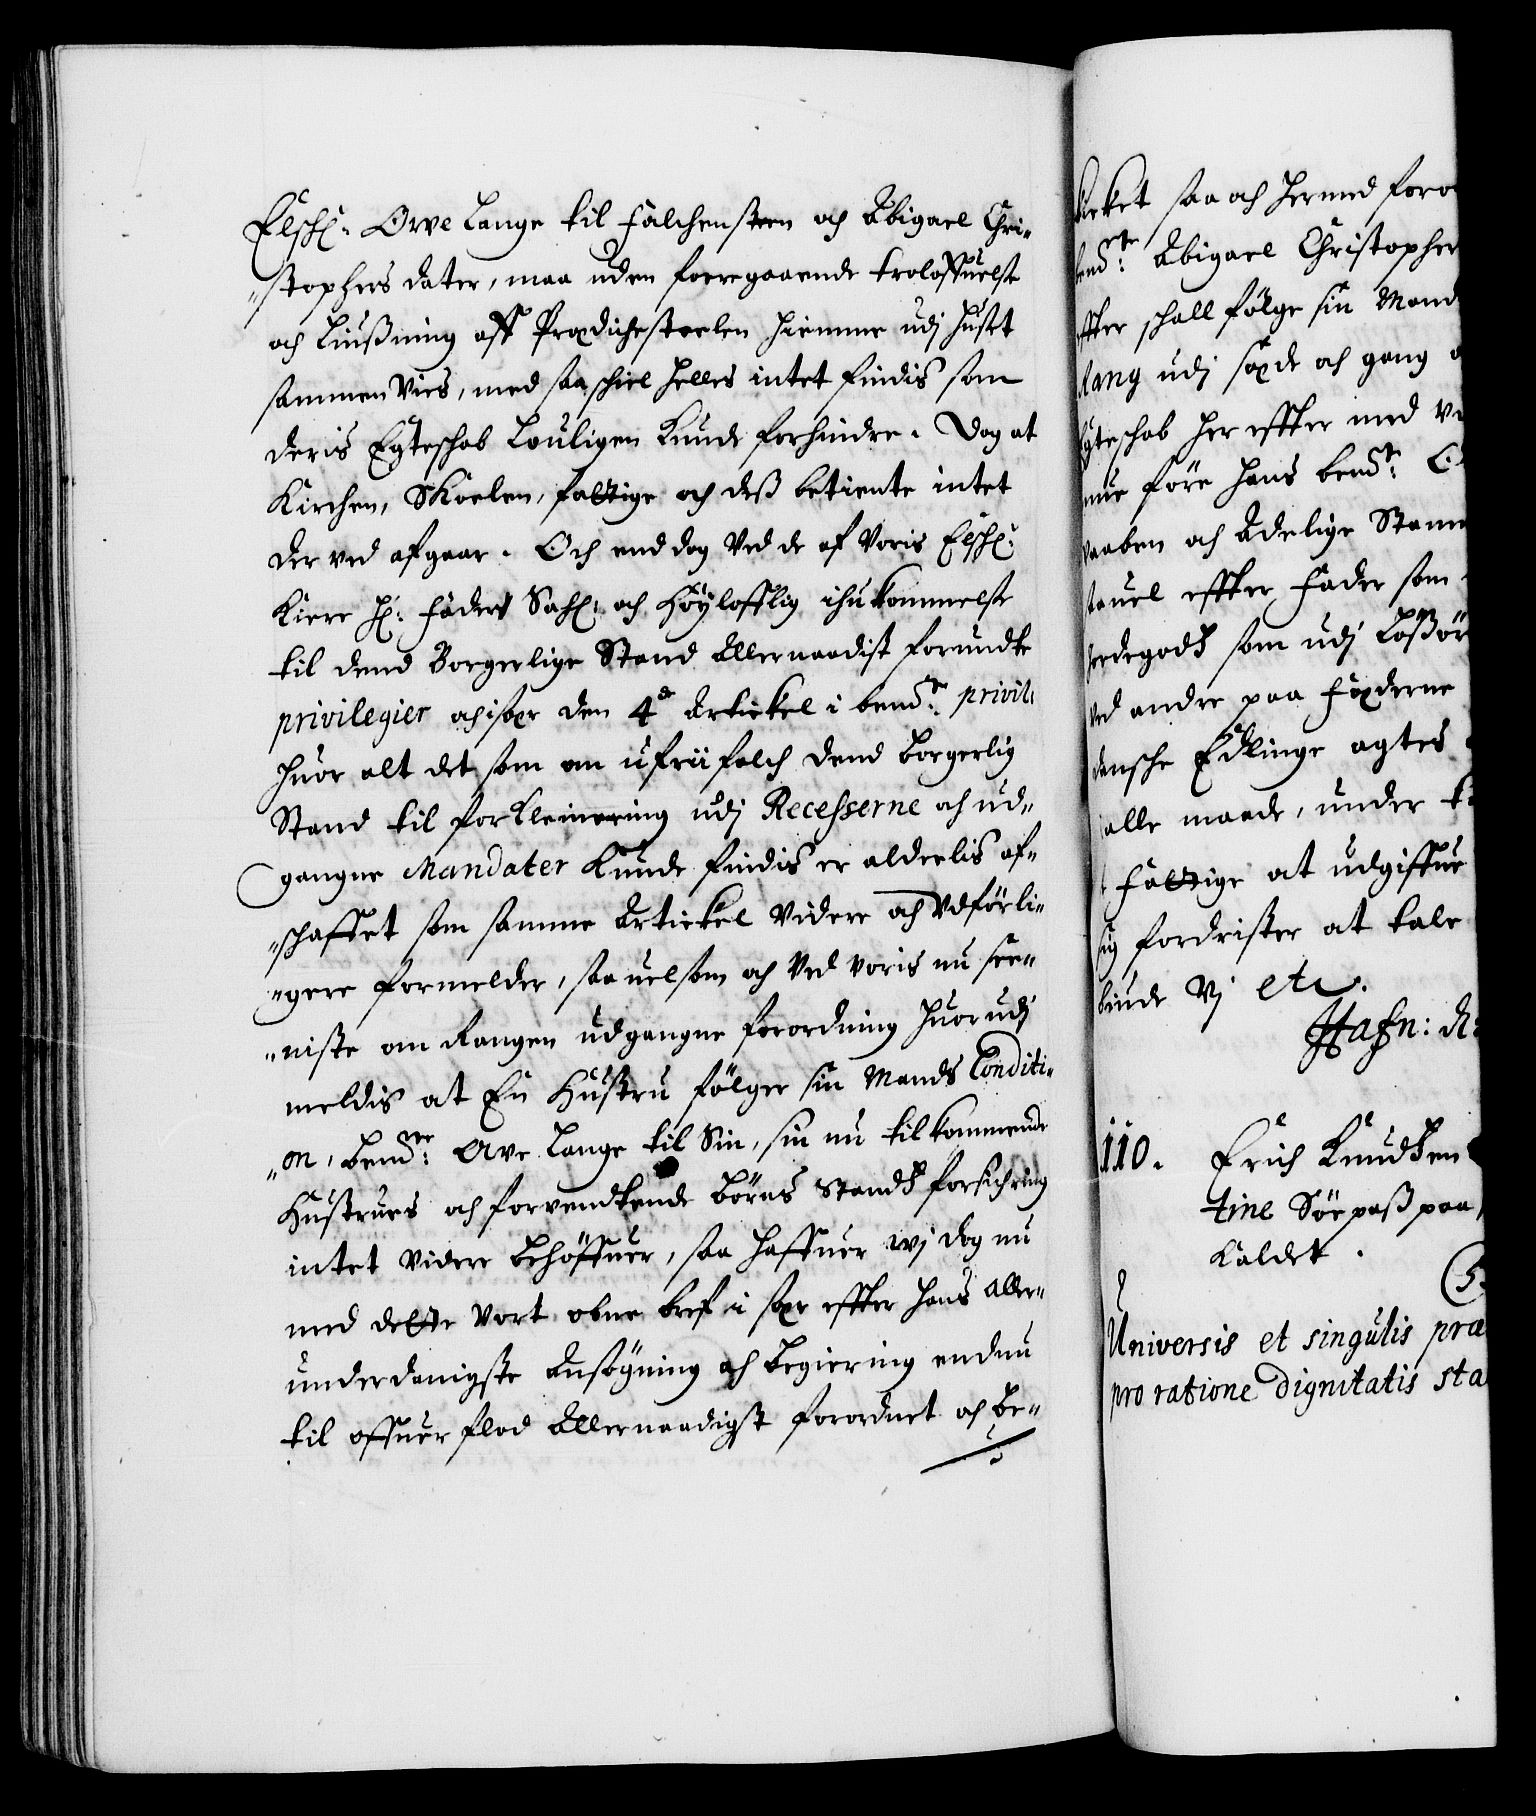 Elschl: Owe Lange til Falchensteen och Abigael Chri-
stophers dater, maa uden foeregaaende troloffuelse
och Liußning aff Prædichestoelen hiemme udj huset
sammen vies, med saa schiel helles intet findis som
deris Egteschab Louligen kunde forhindre. Dog at
Kirchen, Skoelen, fattige och deß betiente intet
der ved afgaar. Och end dog ved de af Voris Elschl:
Kiere H: Faders Sahl: och Høylofflig ihukommelse
til dend Borgerlige Stand Allernaadist forundte
privilegier och især den 4de Artickel i bemte: privil:
huor alt det som om ufrii folch dend borgerlig
Stand til forkleinering udj Recesserne och ud-
gangne Mandater kunde findis er alderlis af-
schaffet som samme Artickel videre och Vdførli-
gere formelder, saauelsom och Ved voris nu see-
niste om Rangen udgangne forordning huorudj
meldis at En Hustru følger sin Mands Conditi-
on, bemte: Owe Lange til Sin, sin nu tilkommende
Hustrues och forvendtende børns Stands forsichring
intet videre behøffuer, saa haffuer wj dog nu
med dette Vort obne bref i sær effter hans aller-
underdanigste Ansøgning och begiering endnu
til offuerflod Allernaadigst forordnet och be-
kret saa och hermed foro
bemte: Abigael Christopher
effter schall følge sin Mand
Rang udj sæde och gang
Egteschab her effter med
føre hans bemte: O
vaaben och Adelige Stam
sauel effter Fader som
Jordegods som udj Løßør
ved andre paa Fæderne
dansche Edlinge agtes
alle maade, under
t Fattige at udgiffue
sig fordrister at tale
binde Vj etc.
Hafn: d:
110. Erich Knudsen
tine Søepaß paa
kaldet.
Universis et singulis præ
pro ratione dignitatis sta